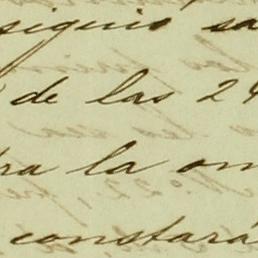 siguió sa
de las 24
ra la om
constará